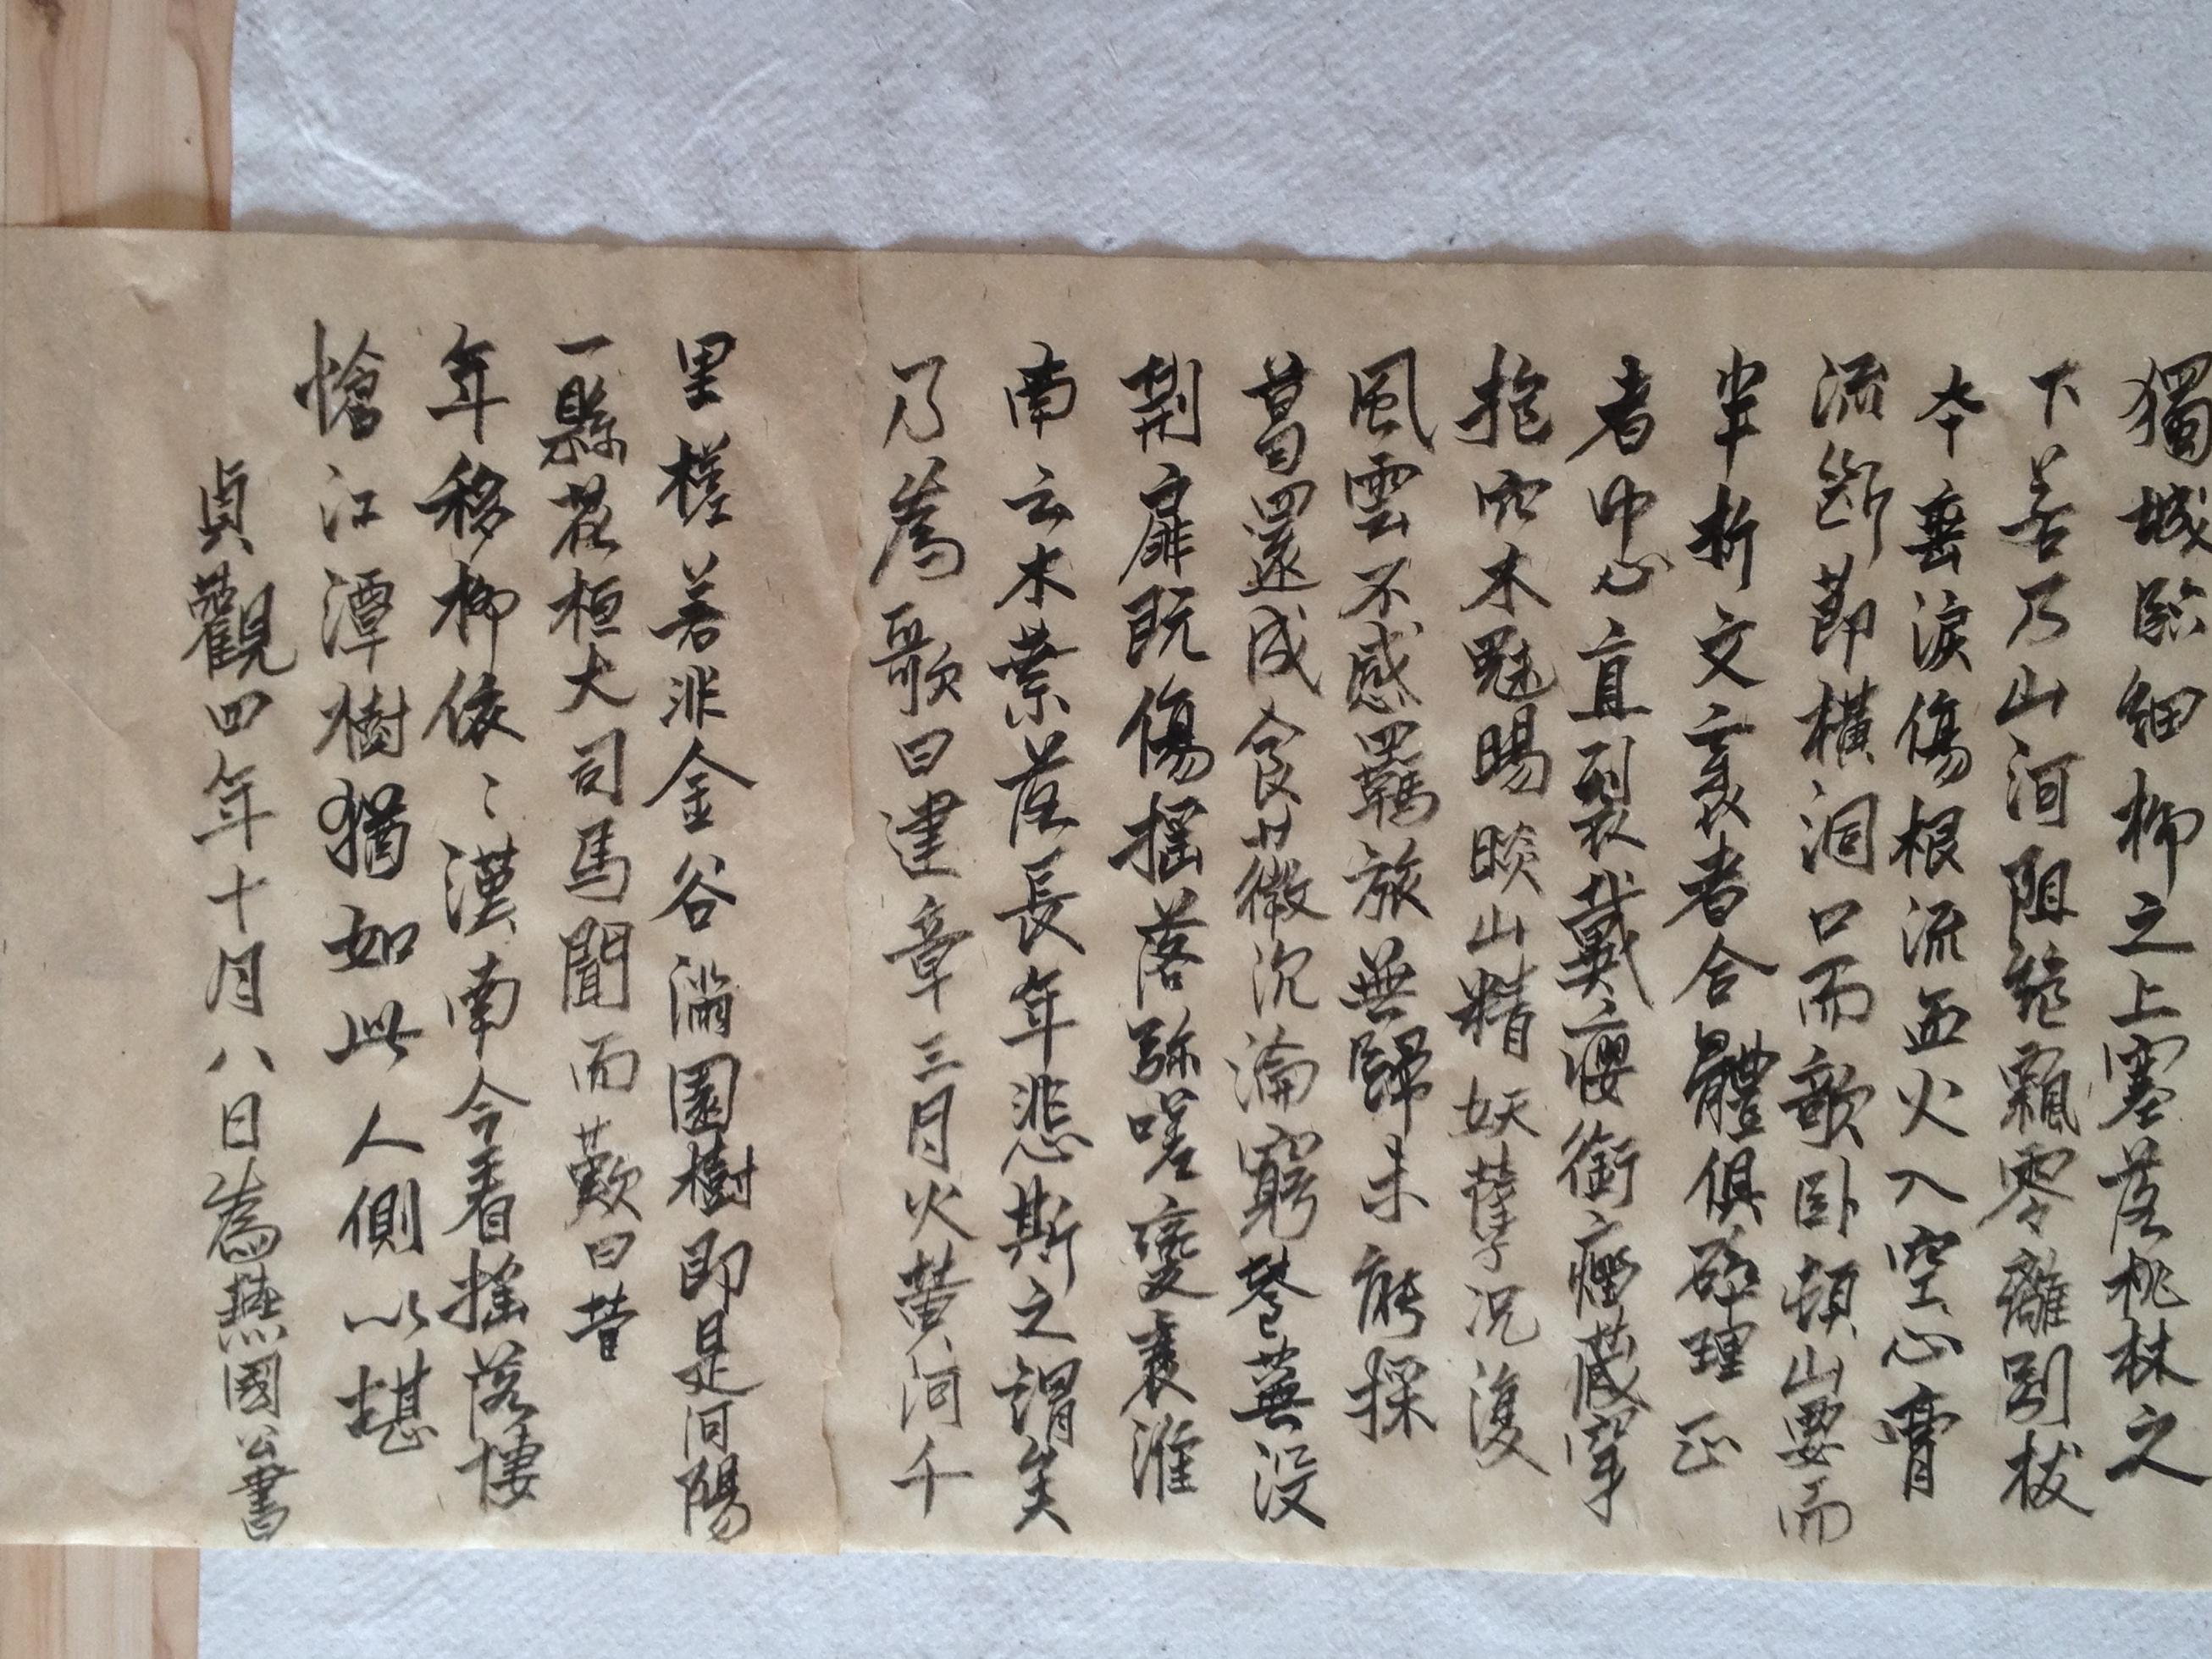 獨城臨細柳之上塞落桃林之
下若乃山河阻絕飄零離別拔
本垂淚傷根流血火入空心膏
流斷節橫洞口而欹臥頓山要而
半折文袤者合體俱碎理正
者中心直裂戴癭銜瘤藏穿
抱穴木魅賜睒山精妖孽況復
風雲不感羈旅無歸未能採
葛還成食薇沉淪窮巷蕪沒
荊扉既傷搖落彌嗟變衰淮
南云木葉落長年悲斯之謂矣
乃為歌曰建章三月火黃河千
里槎若非金谷滿園樹即是河陽
一縣花桓大司馬聞而歎曰昔
年移柳依〻漢南今看搖落悽
愴江潭樹猶如此人側以堪
貞觀四年十月八日為燕國公書